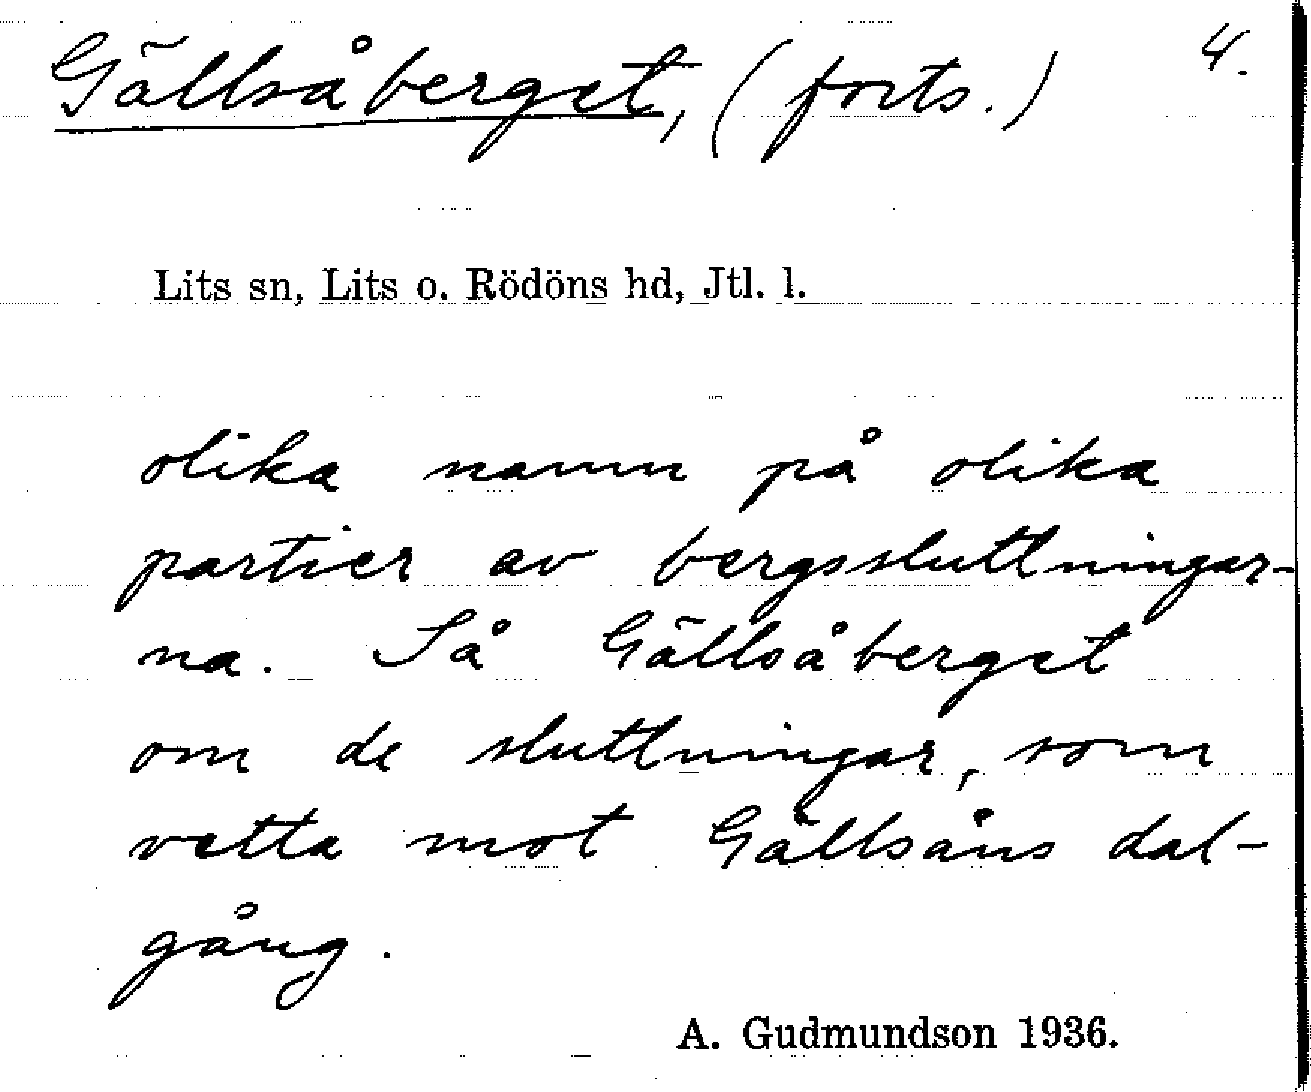 Gällsåberget, (forts.) 4.
Lits sn, Lits o. Rödöns hd, Jtl. l.
olika namn på olika
partier av bergssluttningar-
na. Så Gällsåberget
om de sluttningar, som
vetta mot Gällsåns dal-
gång.
A. Gudmundson 1936.